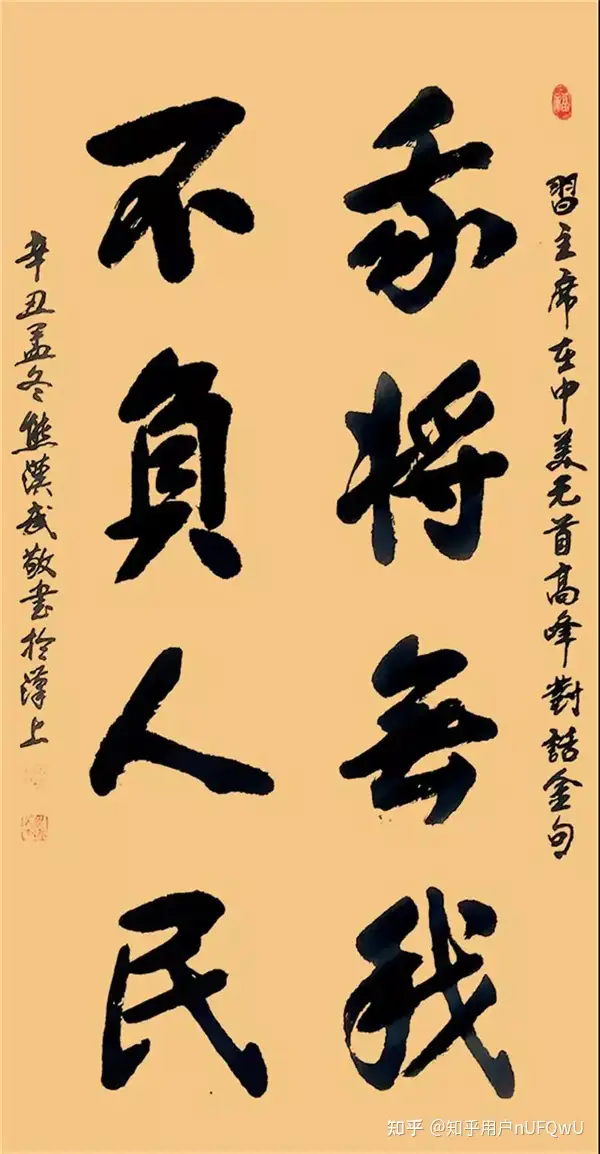 福
習主席在中美元首高峰對話金句
我将無我
不負人民
辛丑孟冬熊漢武敬書於漢上
知乎 @知乎用户nUFQwU